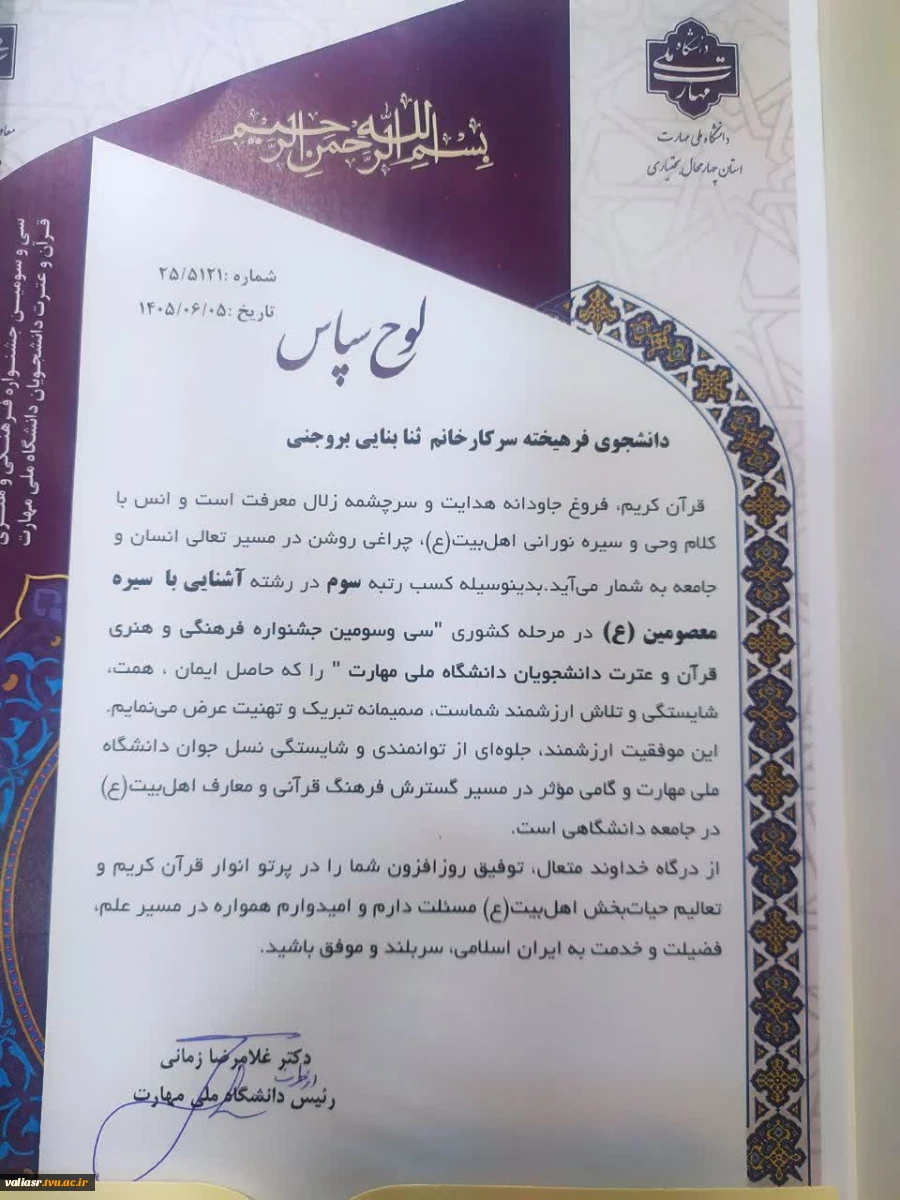 دانشگاه ملی مهارت
دانشگاه ملی مهارت
استان چهارمحال بختیاری
بسم الله الرحمن الرحیم
سی و سومین جشنواره فرهنگی و هنری
قرآن و عترت دانشجویان دانشگاه ملی مهارت
شماره :۲۵/۵۱۲۱
تاریخ :۱۴۰۵/۰۶/۰۵
لوح سپاس
دانشجوی فرهیخته سرکارخانم ثنا بنایی بروجنی
قرآن کریم، فروغ جاودانه هدایت و سرچشمه زلال معرفت است و انس با
کلام وحی و سیره نورانی اهل‌بیت(ع)، چراغی روشن در مسیر تعالی انسان و
جامعه به شمار می‌آید.بدینوسیله کسب رتبه سوم در رشته آشنایی با سیره
معصومین (ع) در مرحله کشوری "سی وسومین جشنواره فرهنگی و هنری
قرآن و عترت دانشجویان دانشگاه ملی مهارت " را که حاصل ایمان ، همت،
شایستگی و تلاش ارزشمند شماست، صمیمانه تبریک و تهنیت عرض می‌نمایم.
این موفقیت ارزشمند، جلوه‌ای از توانمندی و شایستگی نسل جوان دانشگاه
ملی مهارت و گامی مؤثر در مسیر گسترش فرهنگ قرآنی و معارف اهل‌بیت(ع)
در جامعه دانشگاهی است.
از درگاه خداوند متعال، توفیق روزافزون شما را در پرتو انوار قرآن کریم و
تعالیم حیات‌بخش اهل‌بیت(ع) مسئلت دارم و امیدوارم همواره در مسیر علم،
فضیلت و خدمت به ایران اسلامی، سربلند و موفق باشید.
دکتر غلامرضا زمانی
رئیس دانشگاه ملی مهارت
valiasr.tvu.ac.ir